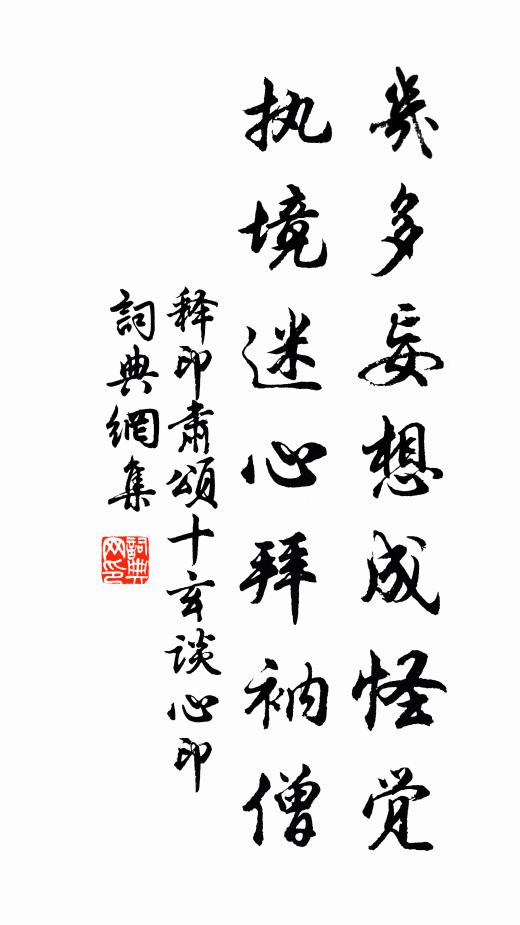 幾多妄想成怪觉
执境迷心拜衲僧
释印肃頌十玄谈心印
詞典網集
詞典网印